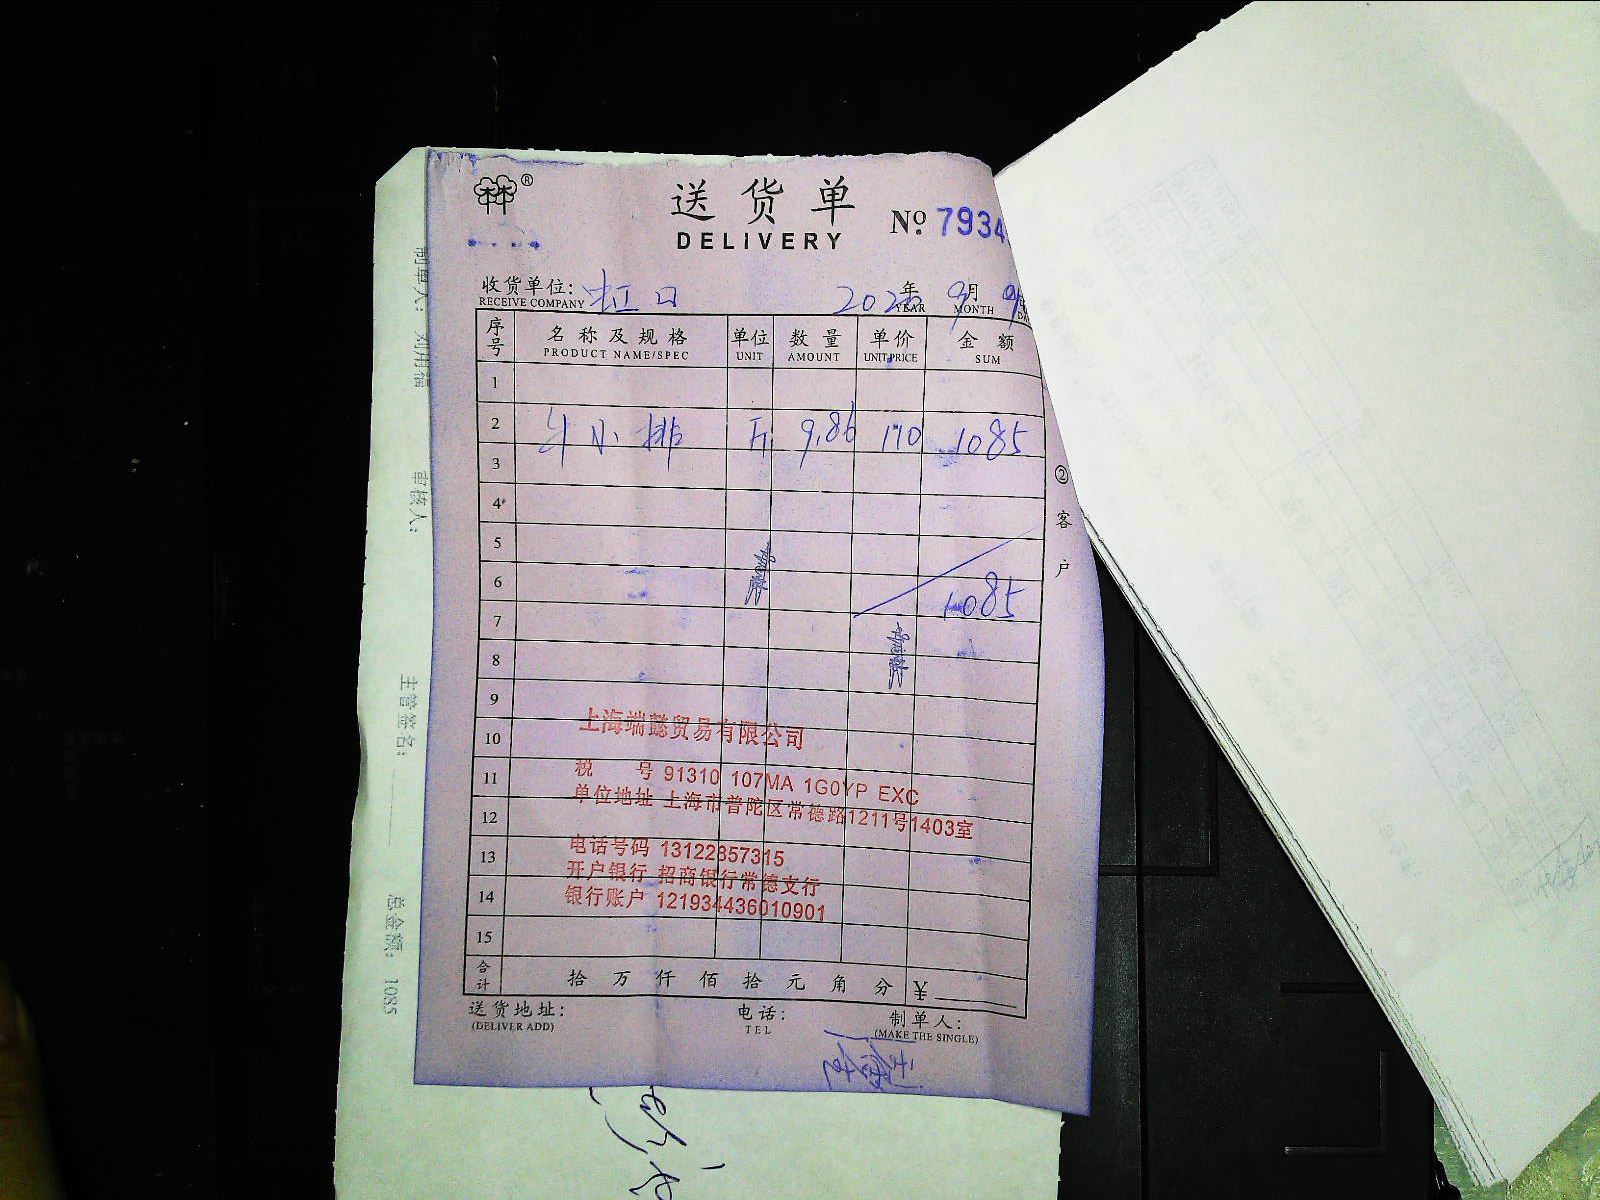 送货单
DELIVERY
№ 7934
收货单位: 虹口 年 9月
RECEIVE COMPANY YEAR MONTH
序号 名称及规格 单位 数量 单价 金额
PRODUCT NAME/SPEC UNIT AMOUNT UNIT PRICE SUM
1
2 牛小排 斤 9.86 110 1085
3
4
5
6 1085
7
8
9
10
11
12
13
14
15
上海端懿贸易有限公司
税 号 91310 107MA 1G0YP EXC
单位地址 上海市普陀区常德路1211号1403室
电话号码 13122357315
开户银行 招商银行常德支行
银行账户 121934436010901
合计 拾 万 仟 佰 拾 元 角 分 ¥
送货地址: 电话: 制单人:
(DELIVER ADD) TEL (MAKE THE SINGLE)
②客户
制单人:
审核人:
主管签名:
总金额: 1085